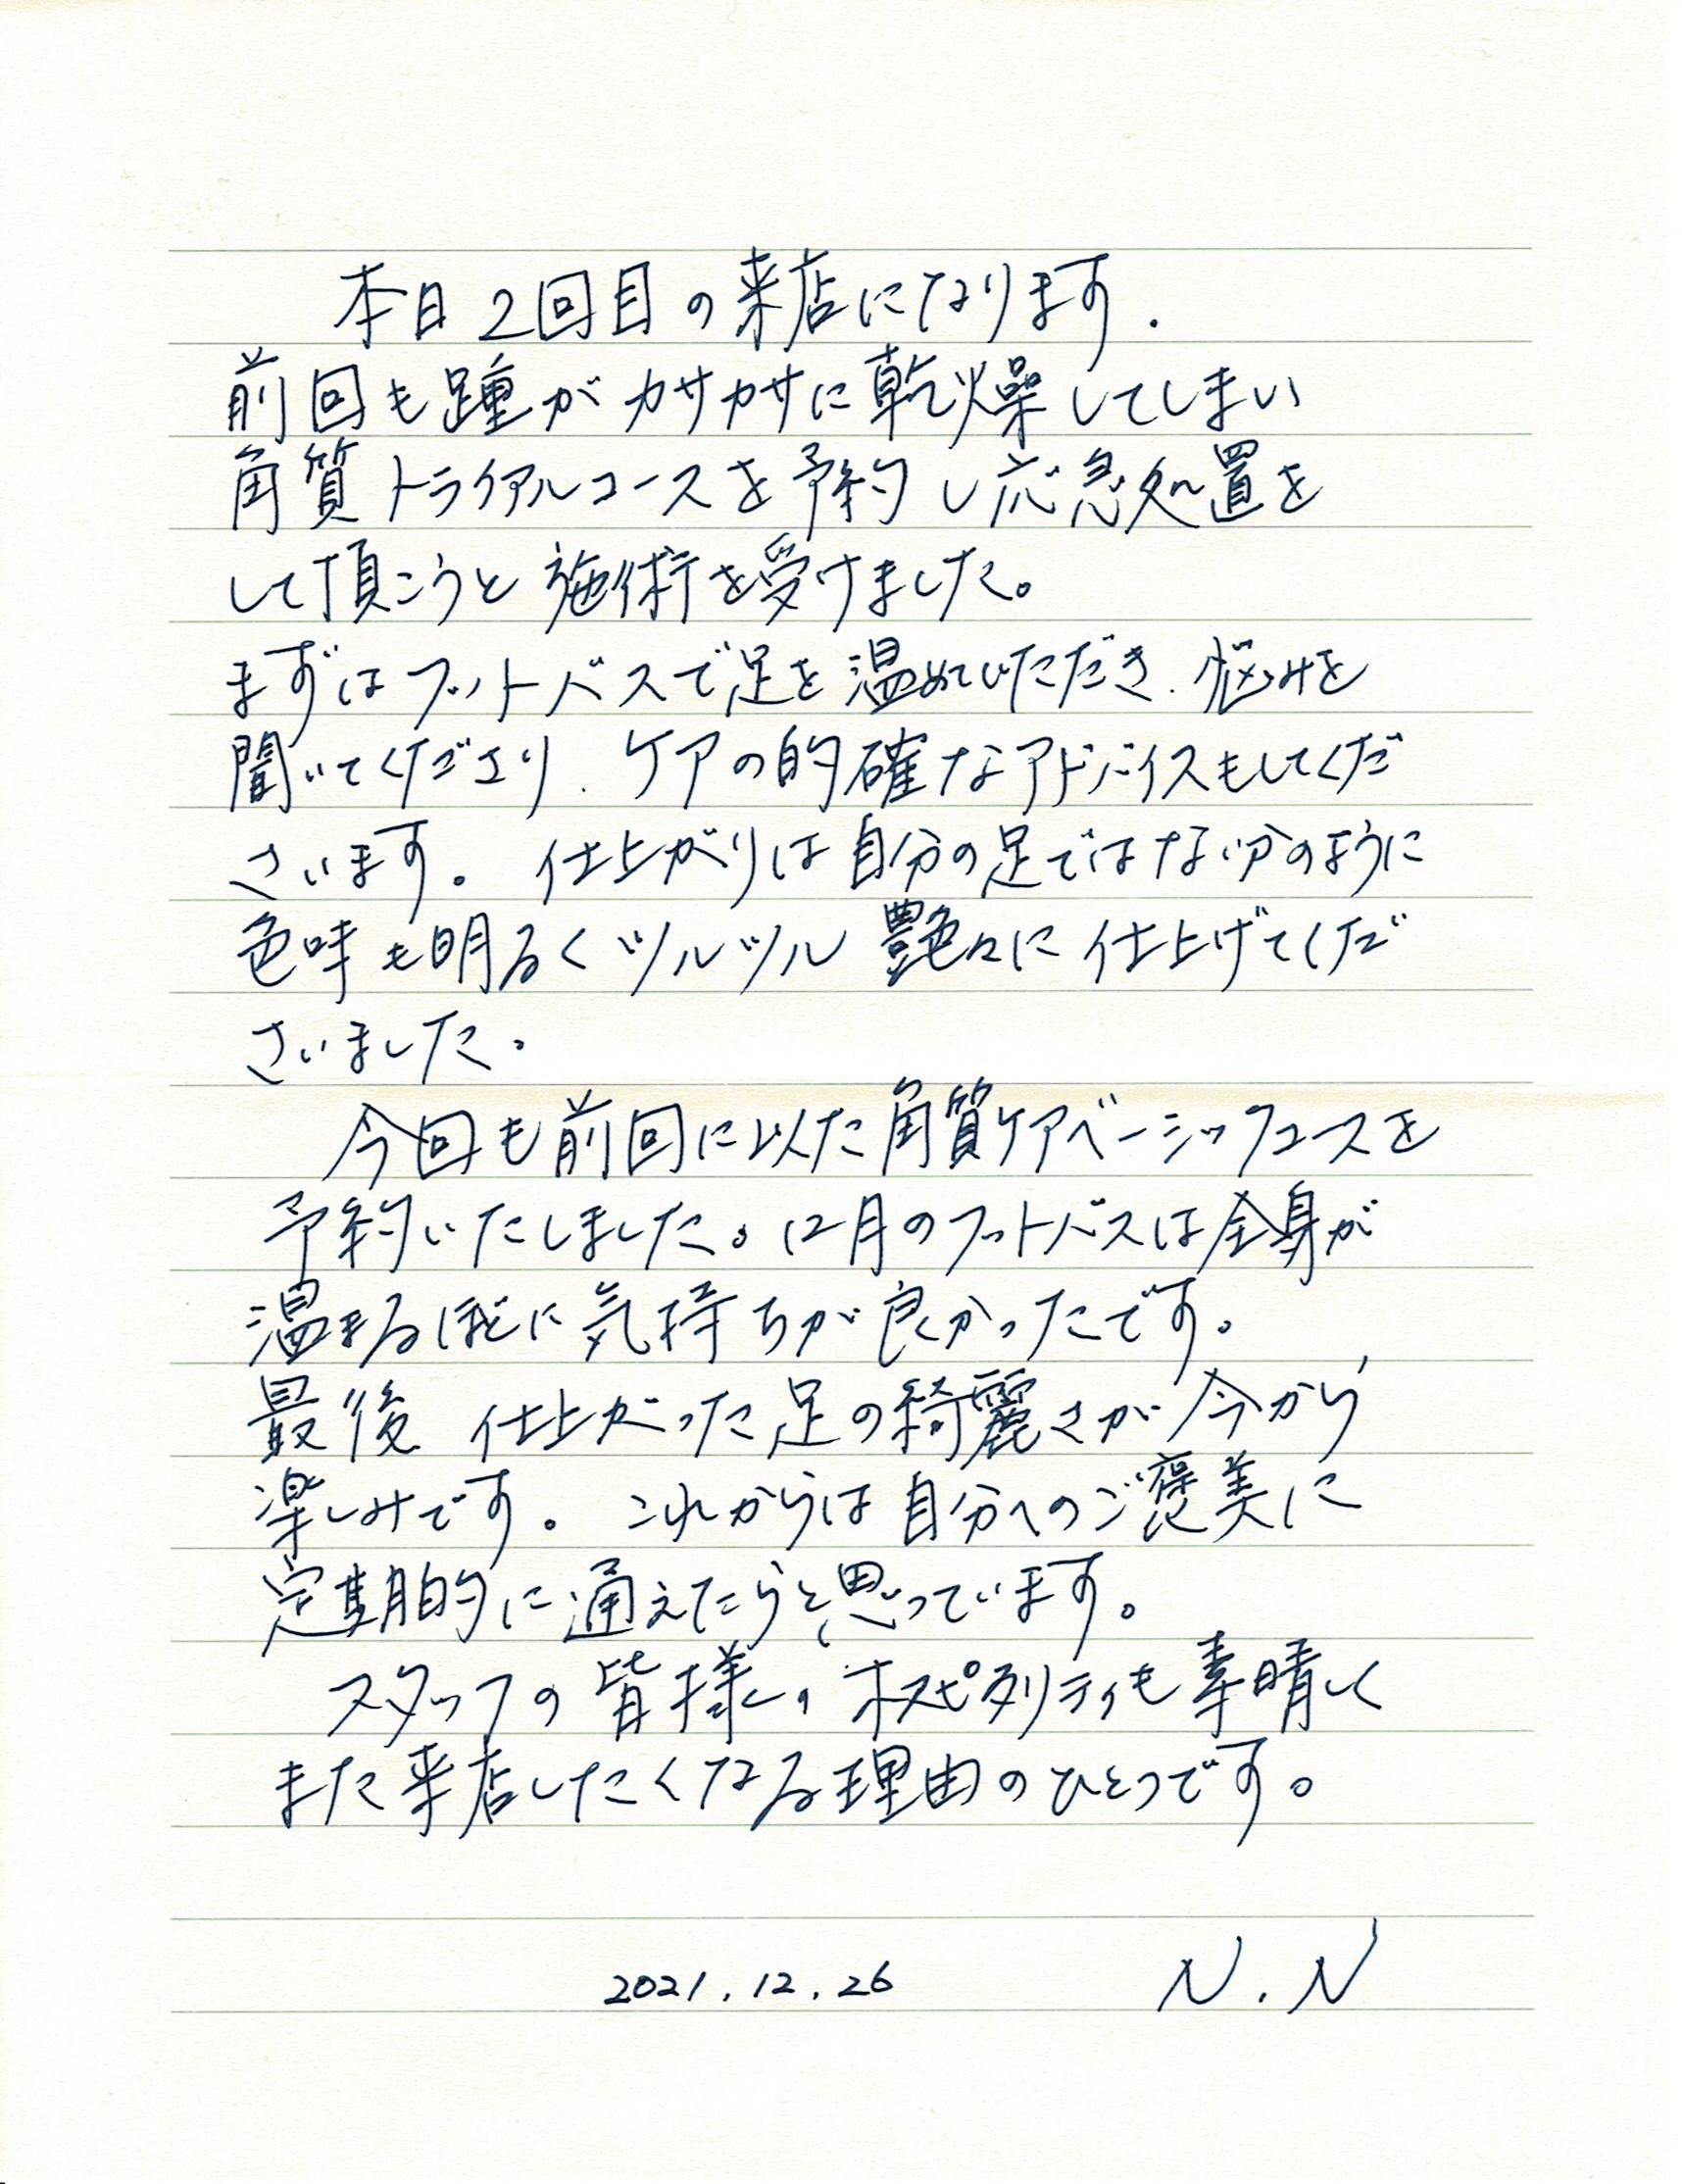 本日2回目の来店になります.
前回も踵がカサカサに乾燥してしまい
角質トライアルコースを予約し応急処置を
して頂こうと施術を受けました。
まずはフットバスで足を温めていただき、悩みを
聞いてくださり、ケアの的確なアドバイスもしてくだ
さいます。仕上がりは自分の足ではない分のように
色味も明るくツルツル艶々に仕上げてくだ
さいました。
今回も前回に以た角質ケアベーシックコースを
予約いたしました。12月のフットバスは全身が
温まるほどに気持ちが良かったです。
最後 仕上がった足の綺麗さが今から
楽しみです。これからは自分へのご褒美に
定期的に通えたらと思っています。
スタッフの皆様、ホスピタリティも素晴しく
また来店したくなる理由のひとつです。
2021.12.26 N.N